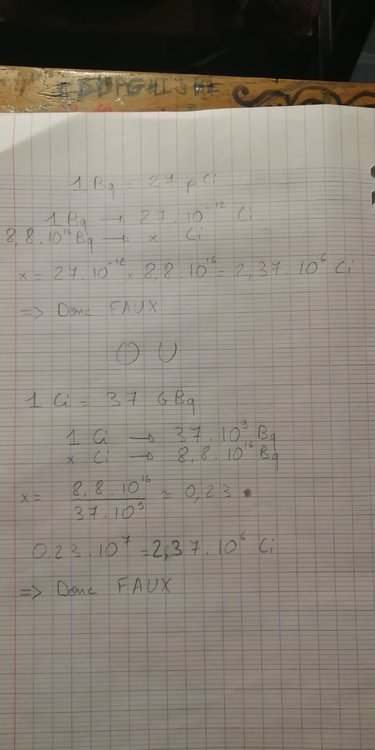 1 Bq = 27 pCi
1 Bq → 27.10⁻¹² Ci
8,8.10¹⁶ Bq → x Ci
x = 27.10⁻¹² × 8,8.10¹⁶ = 2,37.10⁶ Ci
=> Donc FAUX
OU
1 Ci = 37 GBq
1 Ci → 37.10⁹ Bq
x Ci → 8,8.10¹⁶ Bq
x = 8,8.10¹⁶ / 37.10⁹ = 0,23
0,23.10⁷ = 2,37.10⁶ Ci
=> Donc FAUX